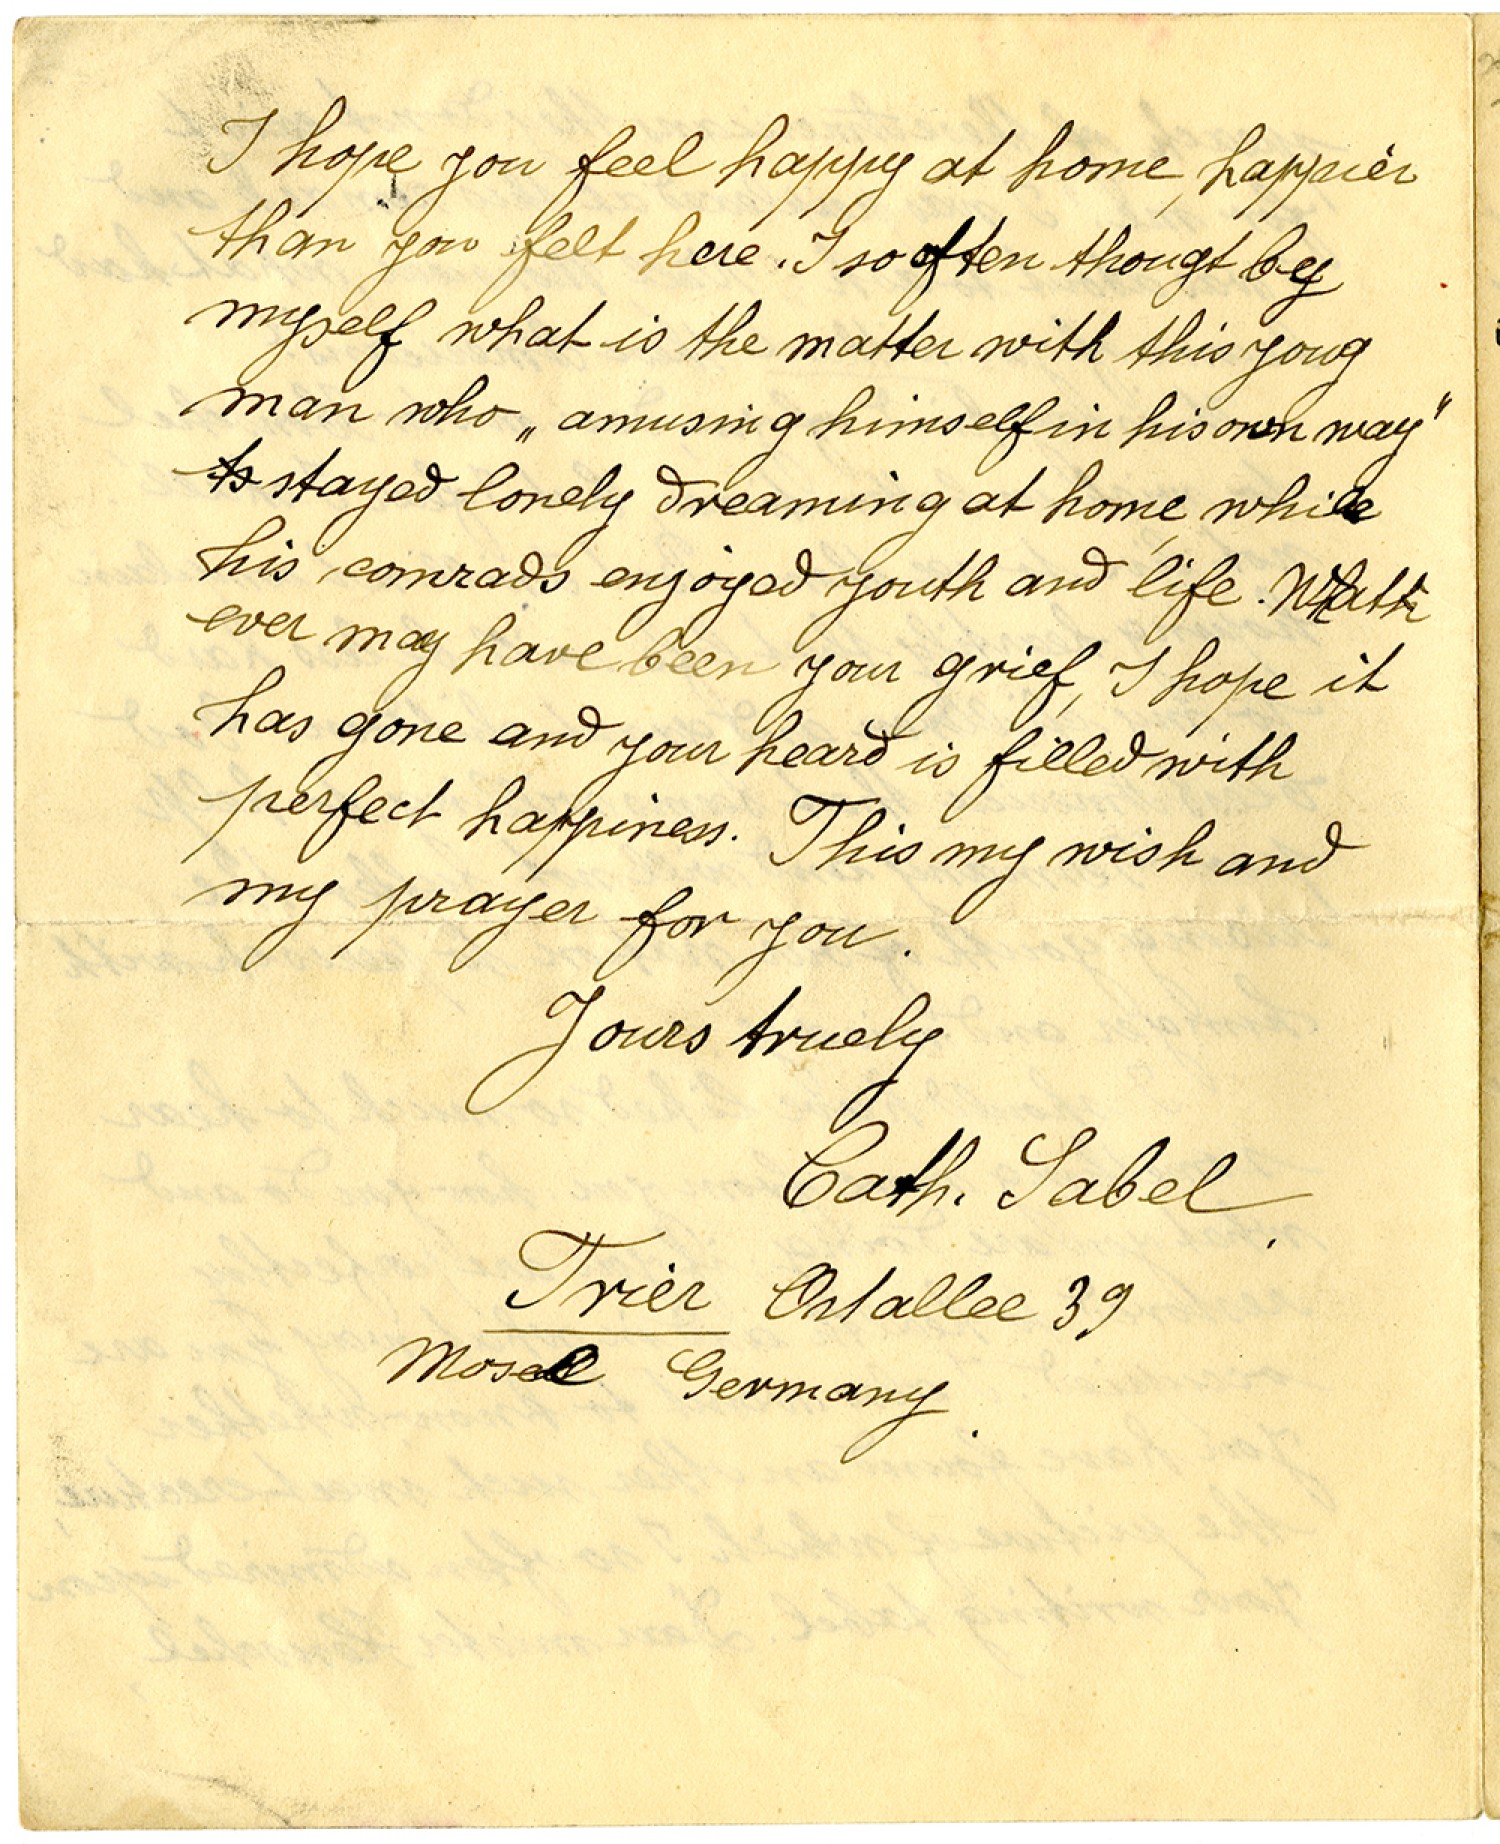 I hope you feel happy at home, happier
than you felt here. I so often thougt by
myself what is the matter with this youg
man who „amusing himself in his own way"
stayed lonely dreaming at home, while
his comrads enjoyed youth and life. Whatt
ever may have been your grief, I hope it
has gone and your heard is filled with
perfect happiness. This my wish and
my prayer for you.
Yours truely
Cath. Sabel.
Trier Ostallee 39
Mosel Germany.